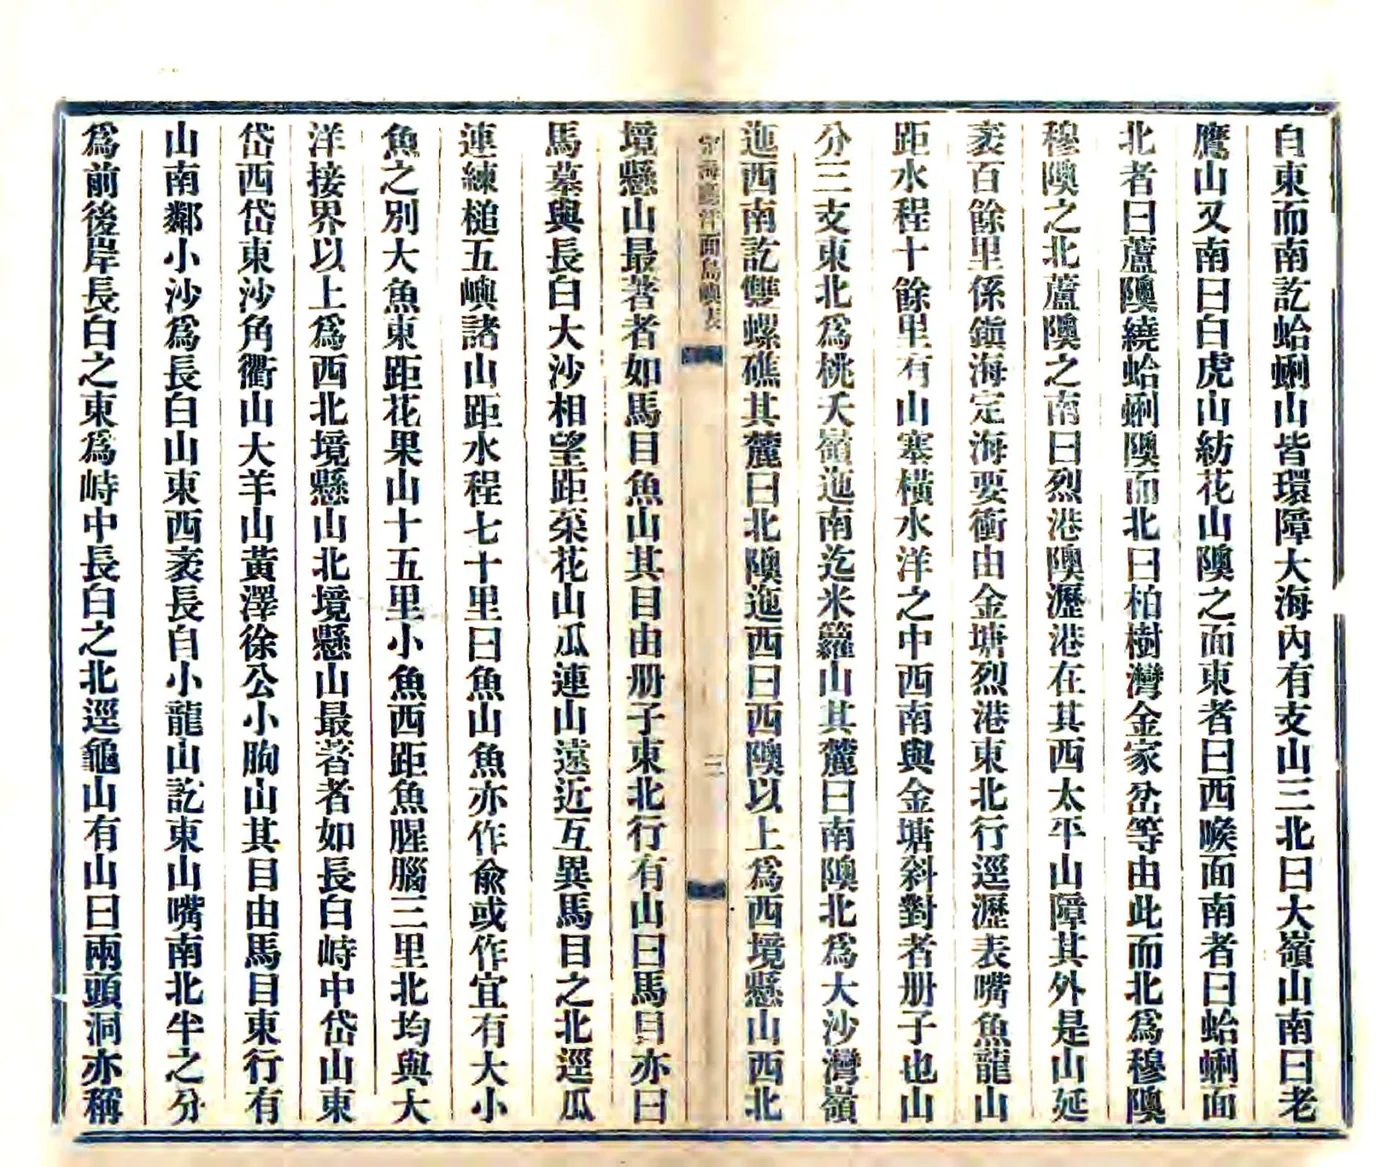 自東而南訖蛤蜊山皆環障大海內有支山三北曰大嶺山南曰老
鷹山又南曰白虎山紡花山隩之面東者曰西㬋面南者曰蛤蜊面
北者曰蘆隩繞蛤蜊隩而北曰柏樹灣金家岙等由此而北爲穆隩
穆隩之北蘆隩之南曰烈港隩瀝港在其西太平山障其外是山延
袤百餘里係鎮海定海要衝由金塘烈港東北行逕瀝表嘴魚龍山
距水程十餘里有山塞橫水洋之中西南與金塘斜對者册子也山
分三支東北爲桃夭嶺迤南迄米籮山其麓曰南隩北爲大沙灣嶺
迤西南訖雙螺礁其麓曰北隩迤西曰西隩以上爲西境懸山西北
定海廳洋面島嶼表
二
境懸山最著者如馬目魚山其目由册子東北行有山曰馬目亦曰
馬墓與長白大沙相望距菜花山瓜連山遠近互異馬目之北逕瓜
連練槌五嶼諸山距水程七十里曰魚山魚亦作俞或作宜有大小
魚之別大魚東距花果山十五里小魚西距魚腥腦三里北均與大
洋接界以上爲西北境懸山北境懸山最著者如長白峙中岱山東
岱西岱東沙角衢山大羊山黃澤徐公小朐山其目由馬目東行有
山南鄰小沙爲長白山東西袤長自小龍山訖東山嘴南北半之分
爲前後岸長白之東爲峙中長白之北逕龜山有山曰兩頭洞亦稱